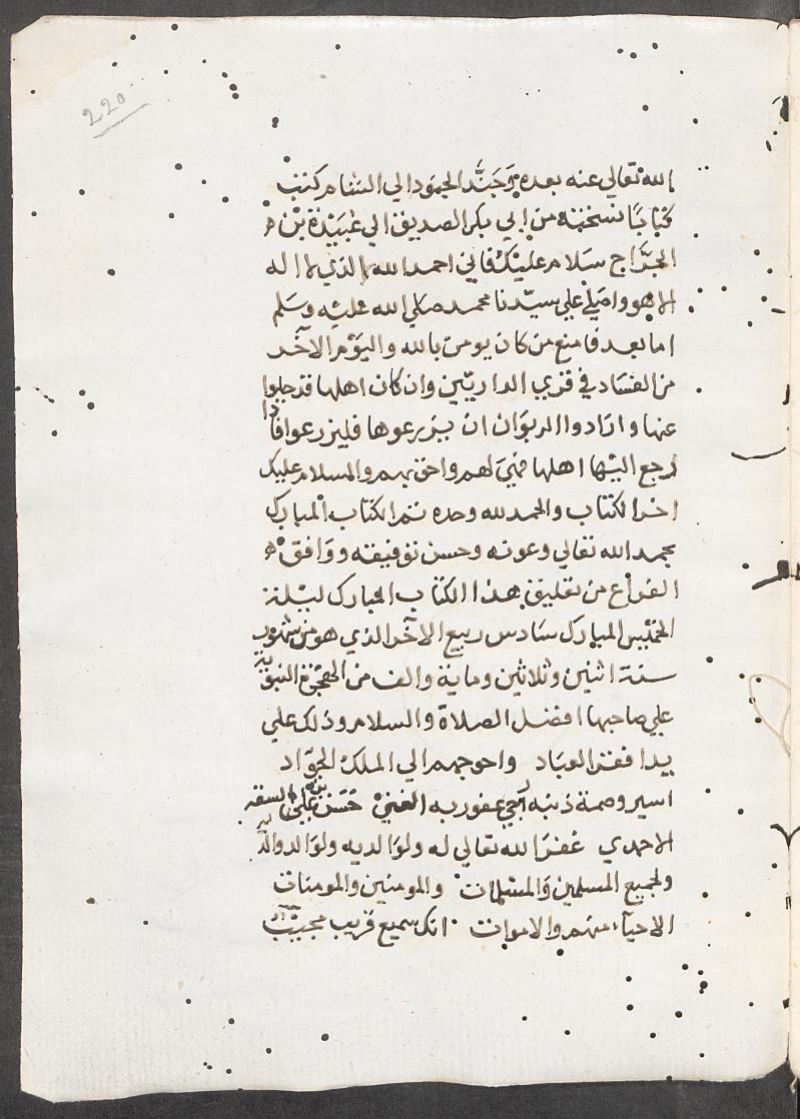 220
الله تعالي عنه بعده وجند الجنود الي الشام كتب
كتابا نسخته من ابي بكر الصديق الي عبيدة بن
الجراح سلام عليك فاني احمد الله الذي لا اله
الا هو واصلي علي سيدنا محمد صلي الله عليه وسلم
اما بعد فامنع من كان يومن بالله واليوم الآخر
من الفساد في قري الداريين وان كان اهلها قد جلوا
عنها واراد والداريوان ان يزرعوها فليزرعوا فاذا
رجع اليها اهلها فهي لهم واحق بهم والسلام عليك
اخر الكتاب والحمد لله وحده تم الكتاب المبارك
بحمد الله تعالي وعونه وحسن توفيقه ووافق
الفراغ من تعليق هذا الكتاب المبارك ليلة
الخميس المبارك سادس ربيع الآخر الذي هو من شهور
سنة اثنين وثلاثين وماية والف من الهجرة النبوية
علي صاحبها افضل الصلاة والسلام وذلك علي
يد افقر العباد واحوجهم الي الملك الجواد
اسير وصمة ذنبه راجي عفو ربه الغني حسن بن علي
الاحمدي غفر الله تعالي له ولوالديه ولوالد والديه
ولجميع المسلمين والمسلمات والمومنين والمومنات
الاحياء منهم والاموات انك سميع قريب مجيب